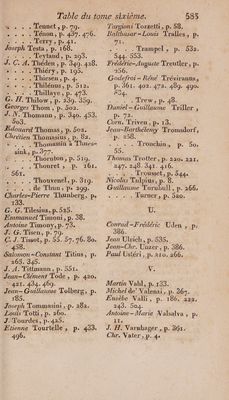 Table du tome sixième. 585
. . . . Tennet, p. 79.
. . . . Ténon, p. 437. 476.
. . . . Terzy, p. 41.
Joseph Testa, p. 168.
. . . . Teytaud, p. 293.
J. C. A. Théden, p. 349. 428.
. . . . Thiéry, p. 195.
. . . . Thiesen, p. 4.
. . . . Thilénus, p. 512.
. . . . Thillaye, p. 473.
G. H. Thilow, p. 239. 359.
Georges Thom, p. 502.
J. N. Thomann, p. 340. 453.
503.
Edouard Thomas, p. 502.
Chrétien Thomasius, p. 82.
. . . . Thomassin à Thues-
sink, p. 377.
. . . . Thornton, p. 519.
. . . . Thouret, p. 261.
561.
. . . . Thouvenel, p. 319.
. . . . de Thun, p. 299.
Charles-Pierre Thunberg, p.
133.
G. G. Tilesius, p. 525.
Emmanuel Timoni, p. 38.
Antoine Timony, p. 73.
J. G. Tisen, p. 79.
C. J. Tissot, p. 55. 57. 76. 80.
438.
Salomon-Constant Titius, p.
263. 345.
J. A. Tittmann, p. 551.
Jean-Clément Tode, p. 420.
421. 434. 469.
Jean-Guillaume Tolberg, p.
185.
Joseph Tommasini, p. 282.
Louis Totti, p. 260.
J. Tourdes, p. 425.
Etienne Tourtelle, p. 433.
496.
Targioni Tozzetti, p. 58.
Balthasar-Louis Tralles, p.
71.
. . . . Trampel, p. 532.
544. 553.
Frédéric-Auguste Treutler, p.
256.
Godefroi-René Tréviranus,
p. 361. 402. 472. 489. 490.
. . . . Trew, p. 48.
Daniel-Guillaume Triller,
p. 72.
Corn. Triven, p. 13.
Jean-Barthélemy Tromsdorf,
p. 258.
. . . . Tronchin, p. 50.
55.
Thomas Trotter, p. 220. 221.
247. 248. 341. 416.
. . . . Trousset, p. 544.
Nicolas Tulpius, p. 8.
Guillaume Turnbull, p. 266.
. . . . Turner, p. 520.
U.
Conrad-Frédéric Uden, p.
386.
Jean Ulrich, p. 535.
Jean-Chr. Unzer, p. 386.
Paul Ustéri, p. 210. 266.
V.
Martin Vahl, p. 133.
Michel de' Valenzi, p. 367.
Eusèbe Valli, p. 186. 222.
243. 504.
Antoine-Marie Valsalva, p.
11.
J. H. Varnhager, p. 361.
Chr. Vater, p. 4.